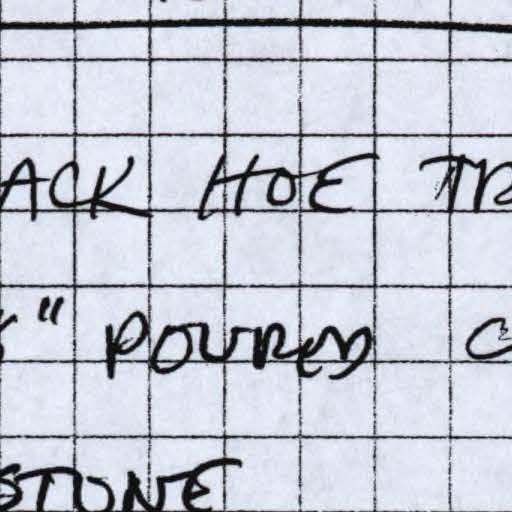 ACK HOE TR
" POURED C
STONE